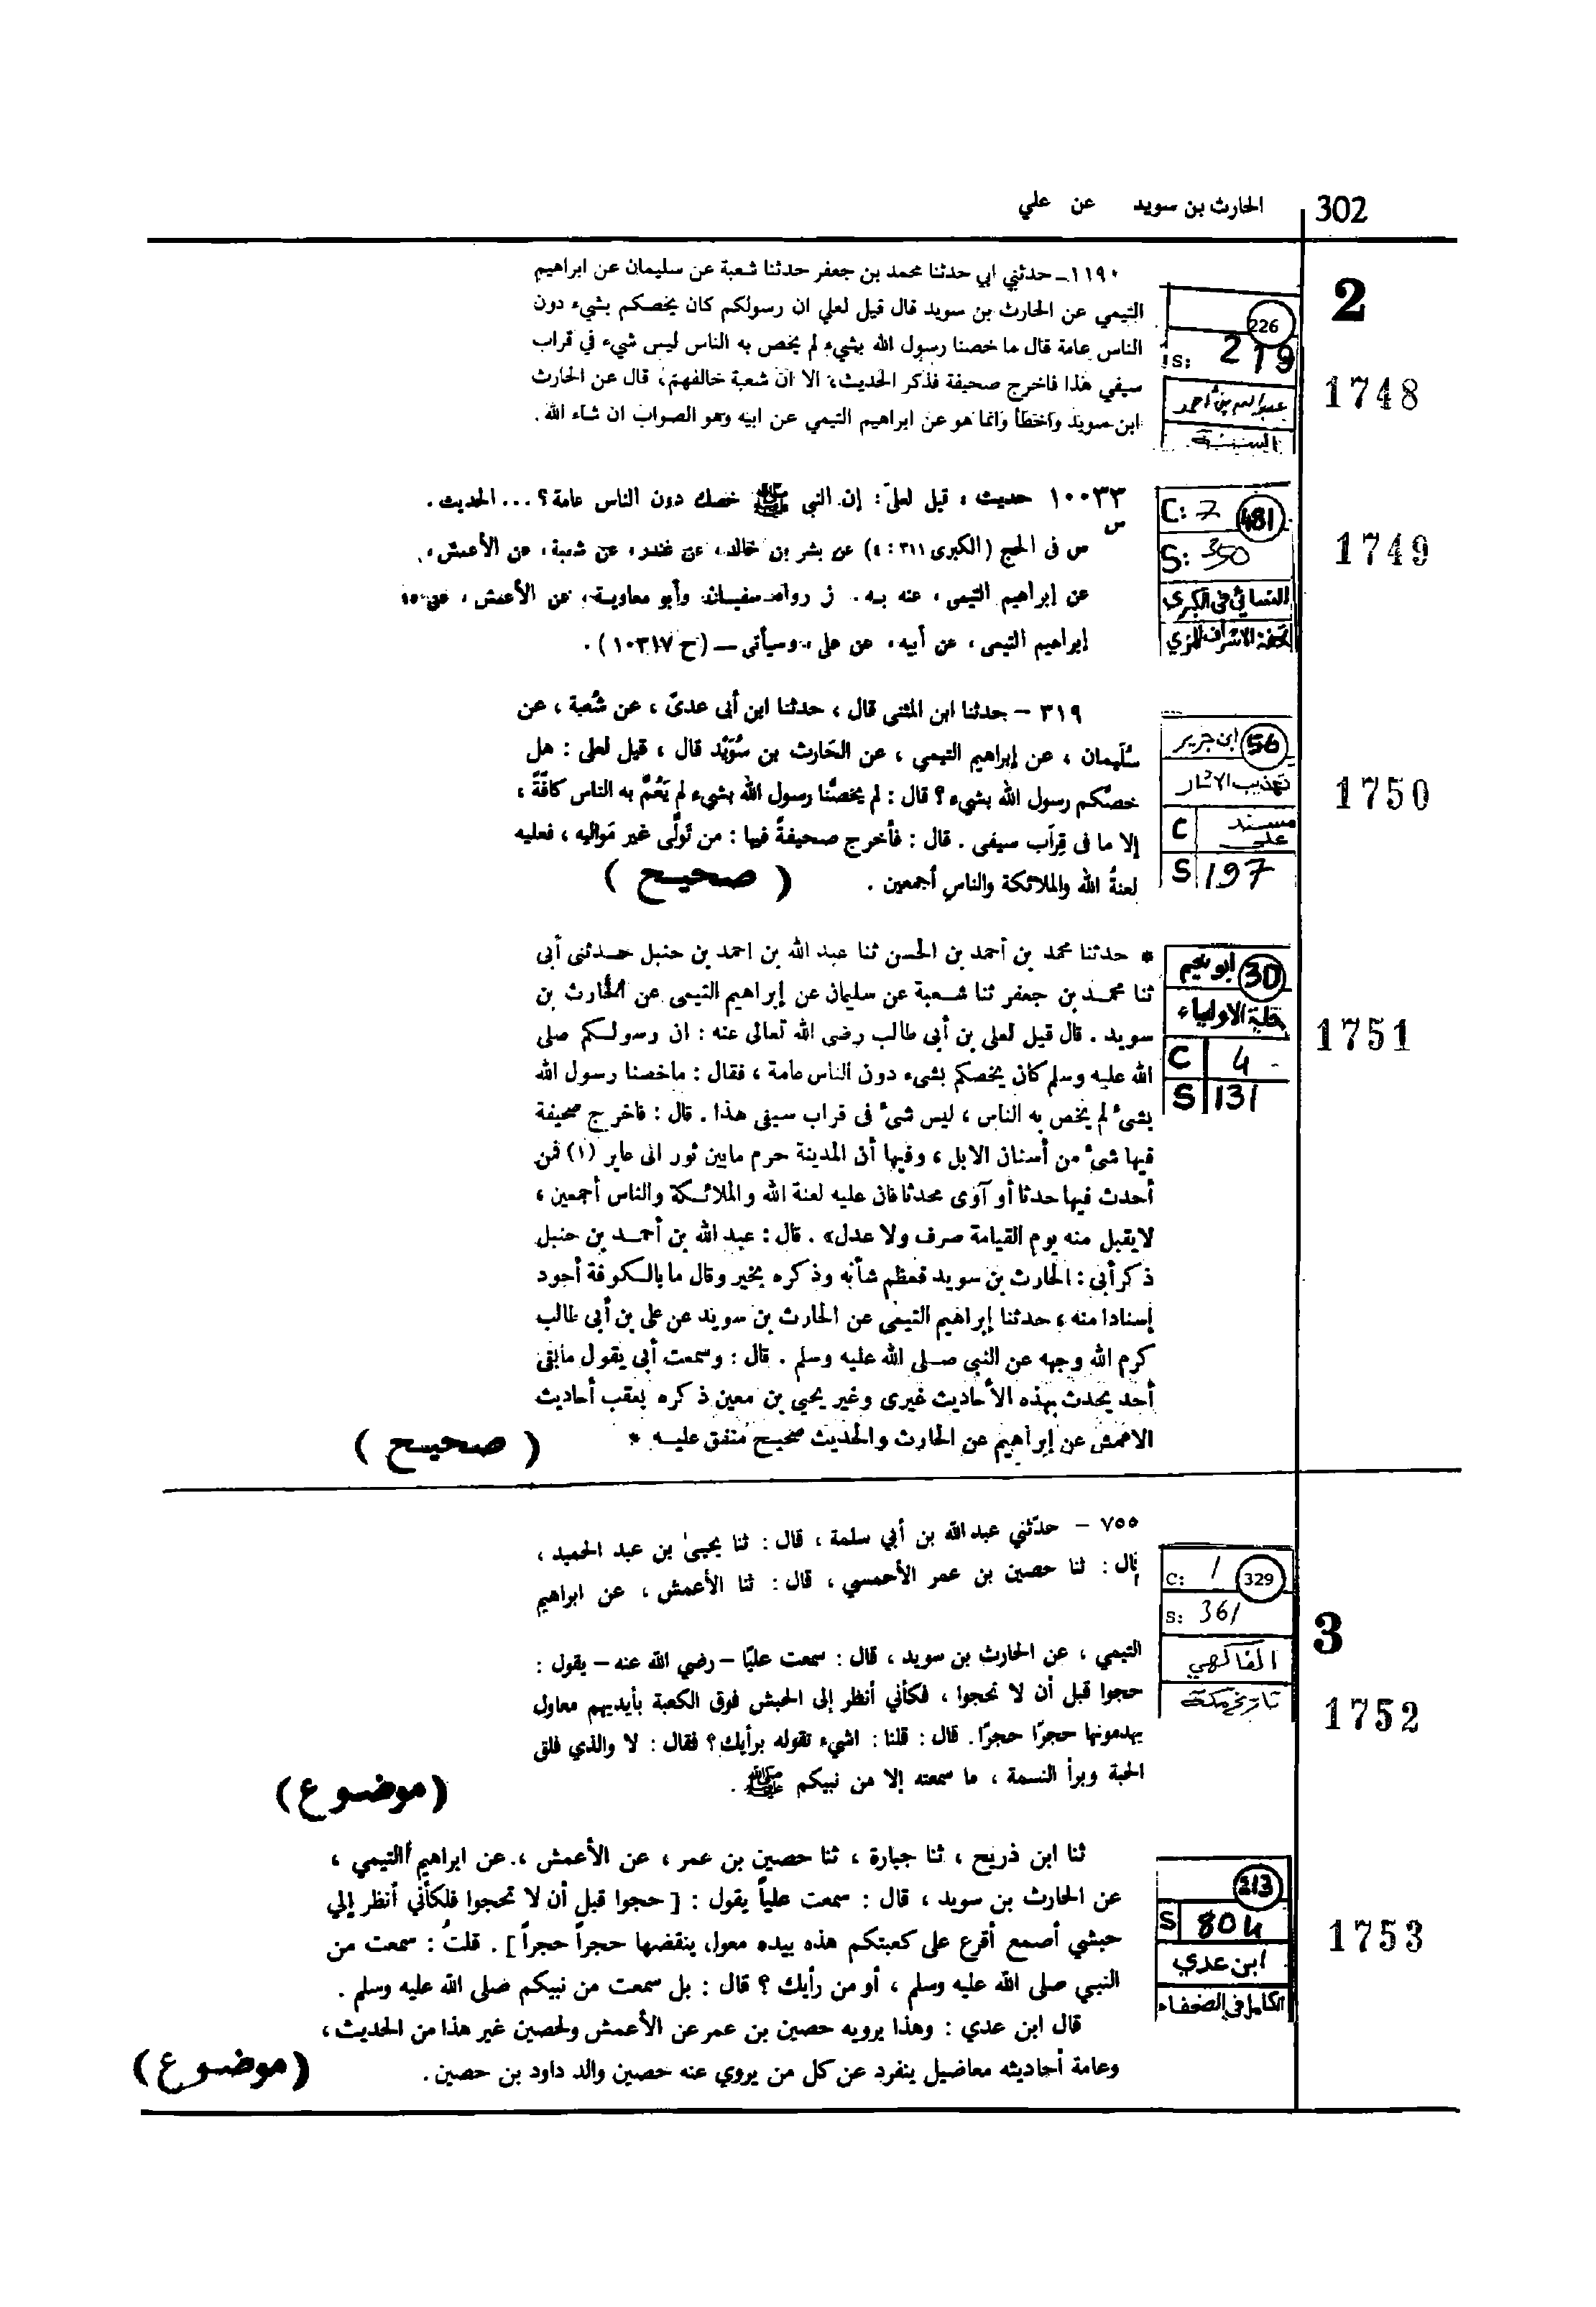 302 الحارث بن سويد عن علي
2
١١٩٠ـ حدثني ابي حدثنا محمد بن جعفر حدثنا شعبة عن سليمان عن ابراهيم
التيمي عن الحارث بن سويد قال قيل لعلي ان رسولكم كان يخصكم بشيء دون
الناس عامة قال ما خصنا رسول الله بشيء لم يخص به الناس ليس شيء في قراب
سيفي هذا فاخرج صحيفة فذكر الحديث، الا ان شعبة خالفهم، قال عن الحارث
ابن سويد واخطأ وانما هو عن ابراهيم التيمي عن ابيه وهو الصواب ان شاء الله.
226
S: 219
عبد الله بن احمد
السنة
1748
١٠٠٣٣ حديث ، قيل لعليّ : إن النبي ﷺ خصك دون الناس عامة ؟ ... الحديث .
س
س فى الحج (الكبرى ٣١١ : ٤) عن بشر بن خالد، عن غندر، عن شعبة، عن الأعمش،
عن إبراهيم التيمى ، عنه به . ز رواه سفيان وأبو معاوية، عن الأعمش ، عن
إبراهيم التيمى ، عن أبيه، عن على، وسيأتى ــ (ح ١٠٣١٧) .
C: 7 481
S: 350
النسائي في الكبرى
تحفة الاشراف للمزي
1749
٣١٩ - حدثنا ابن المثنى قال ، حدثنا ابن أبى عدىّ ، عن شُعبة ، عن
سُلَيمان ، عن إبراهيم التيمي ، عن الحَارث بن سُوَيْد قال ، قيل لعلى : هل
خصّكم رسول الله بشيء ؟ قال : لم يخصَّنا رسول الله بشيء لم يَعُمَّ به الناس كافّةً ،
إلا ما فى قِرَاب سيفى . قال : فأخرج صحيفةً فيها : من تَولَّى غير مَواليه ، فعليه
لعنةُ الله والملائكة والناسِ أجمعين . ( صحيح )
56 ابن جرير
تهذيب الاثار
C مسند علي
S 197
1750
* حدثنا محمد بن أحمد بن الحسن ثنا عبد الله بن احمد بن حنبل حدثنى أبى
ثنا محمد بن جعفر ثنا شعبة عن سليمان عن إبراهيم التيمى عن الحارث بن
سويد . قال قيل لعلى بن أبى طالب رضى الله تعالى عنه : ان رسولكم صلى
الله عليه وسلم كان يخصكم بشىء دون الناس عامة ، فقال : ماخصنا رسول الله
بشىء لم يخص به الناس ، ليس شىء فى قراب سيفى هذا . قال : فاخرج صحيفة
فيها شىء من أسنان الابل ، وفيها أن المدينة حرم مابين ثور الى عاير (١) فمن
أحدث فيها حدثا أو آوى محدثا فان عليه لعنة الله والملائكة والناس أجمعين ،
لا يقبل منه يوم القيامة صرف ولا عدل» . قال : عبد الله بن أحمد بن حنبل
ذكر أبى : الحارث بن سويد فعظم شأنه وذكره بخير وقال ما بالكوفة أجود
إسنادا منه ، حدثنا إبراهيم التيمى عن الحارث بن سويد عن على بن أبى طالب
كرم الله وجهه عن النبى صلى الله عليه وسلم . قال : وسمعت أبى يقول مابقى
أحد يحدث بهذه الأحاديث غيرى وغير يحيى بن معين ذكره بعقب أحاديث
الاعمش عن إبراهيم عن الحارث والحديث صحيح متفق عليه * ( صحيح )
30 ابو نعيم
حلية الاولياء
C 4
S 131
1751
٧٥٥ - حدّثني عبد الله بن أبي سلمة ، قال : ثنا يحيىٰ بن عبد الحميد ،
قال : ثنا حصين بن عمر الأحمسي ، قال : ثنا الأعمش ، عن ابراهيم
التيمي ، عن الحارث بن سويد ، قال : سمعت عليًا - رضي الله عنه - يقول :
حجوا قبل أن لا تحجوا ، فكأني أنظر إلى الحبش فوق الكعبة بأيديهم معاول
يهدمونها حجرًا حجرًا. قال : قلنا : اشيء تقوله برأيك ؟ فقال : لا والذي فلق
الحبة وبرأ النسمة ، ما سمعته إلا من نبيكم ﷺ .
(موضوع)
C: 1 329
S: 361
الفاكهي
تاريخ مكة
3
1752
ثنا ابن ذريح ، ثنا جبارة ، ثنا حصين بن عمر ، عن الأعمش ، عن ابراهيم التيمي ،
عن الحارث بن سويد ، قال : سمعت علياً يقول : [ حجوا قبل أن لا تحجوا فلكأني أنظر إلي
حبشي أصمع أقرع على كعبتكم هذه بيده معول ينقضها حجراً حجراً ] . قلتُ : سمعت من
النبي صلى الله عليه وسلم ، أو من رأيك ؟ قال : بل سمعت من نبيكم صلى الله عليه وسلم .
قال ابن عدي : وهذا يرويه حصين بن عمر عن الأعمش ولحصين غير هذا من الحديث ،
وعامة أحاديثه معاضيل ينفرد عن كل من يروي عنه حصين والد داود بن حصين .
(موضوع)
213
S 804
ابن عدي
الكامل في الضعفاء
1753